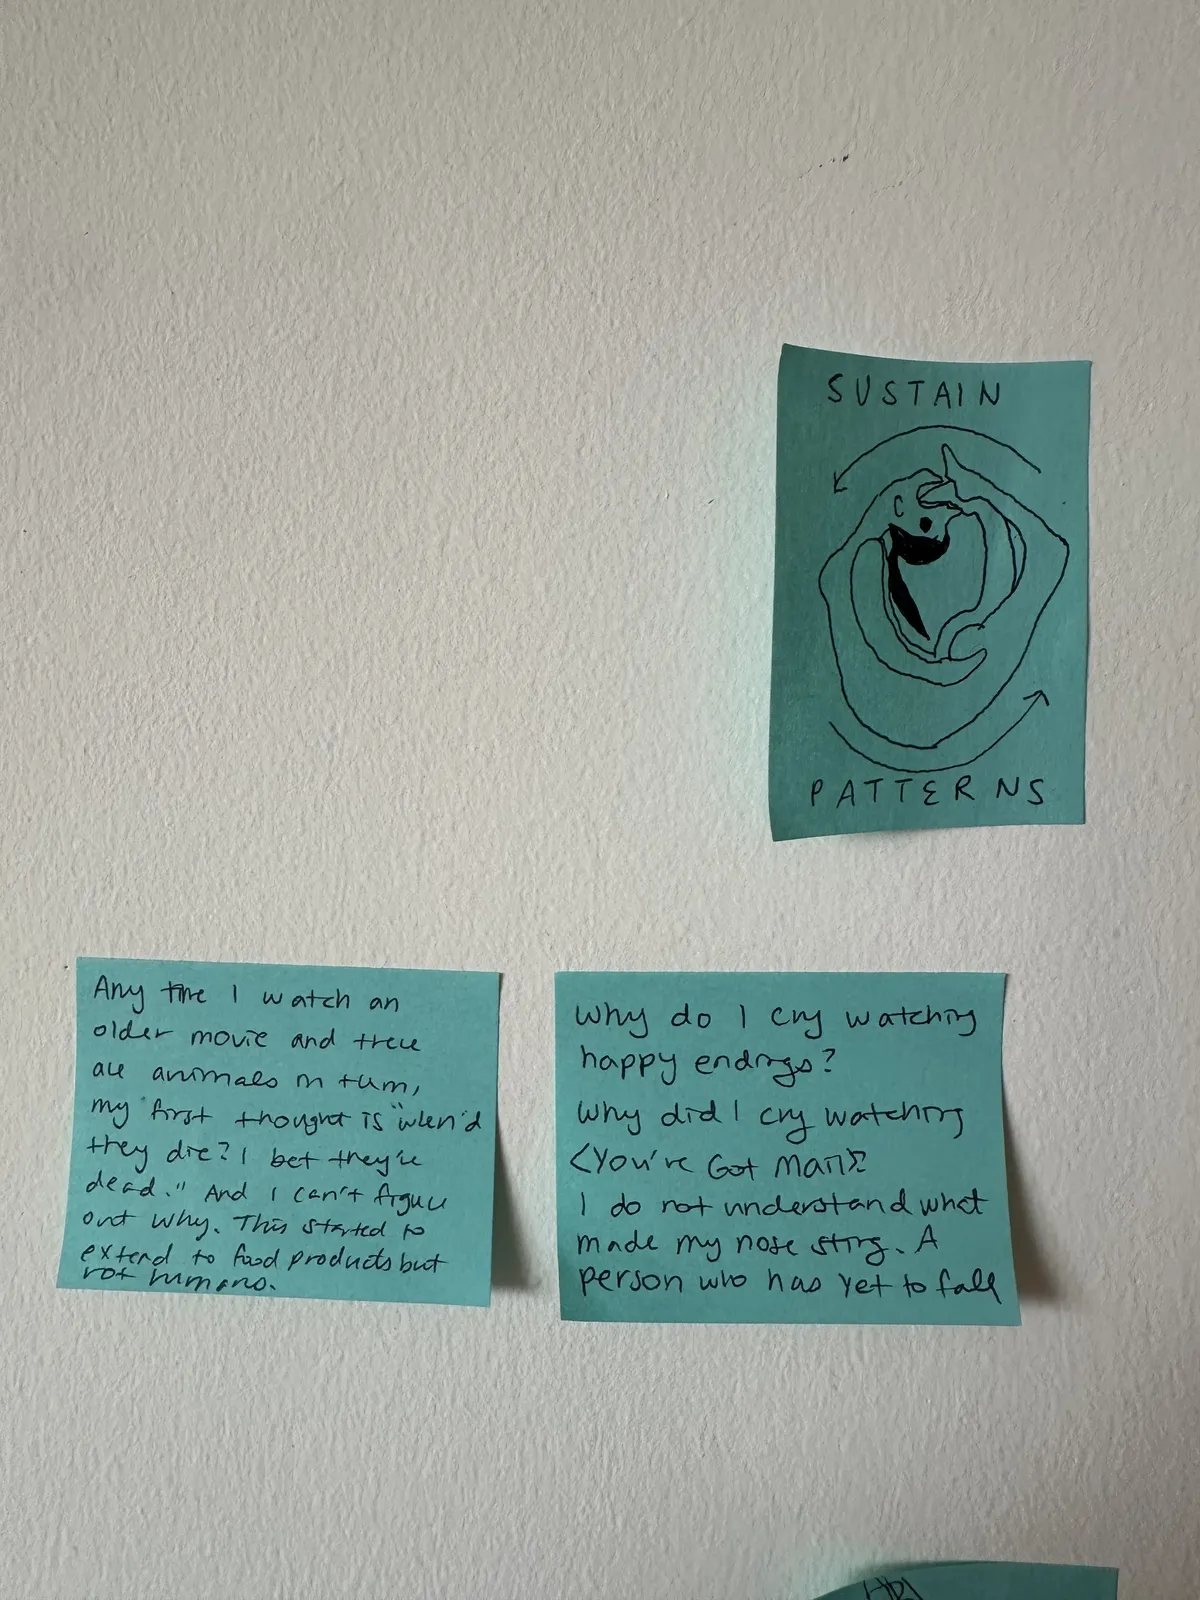 SUSTAIN
PATTERNS
Any time I watch an
older movie and there
are animals in them,
my first thought is "when'd
they die? I bet they're
dead." And I can't figure
out why. This started to
extend to food products but
not humans.
Why do I cry watching
happy endings?
Why did I cry watching
<You're Got Mail>?
I do not understand what
made my nose sting. A
person who has yet to fall